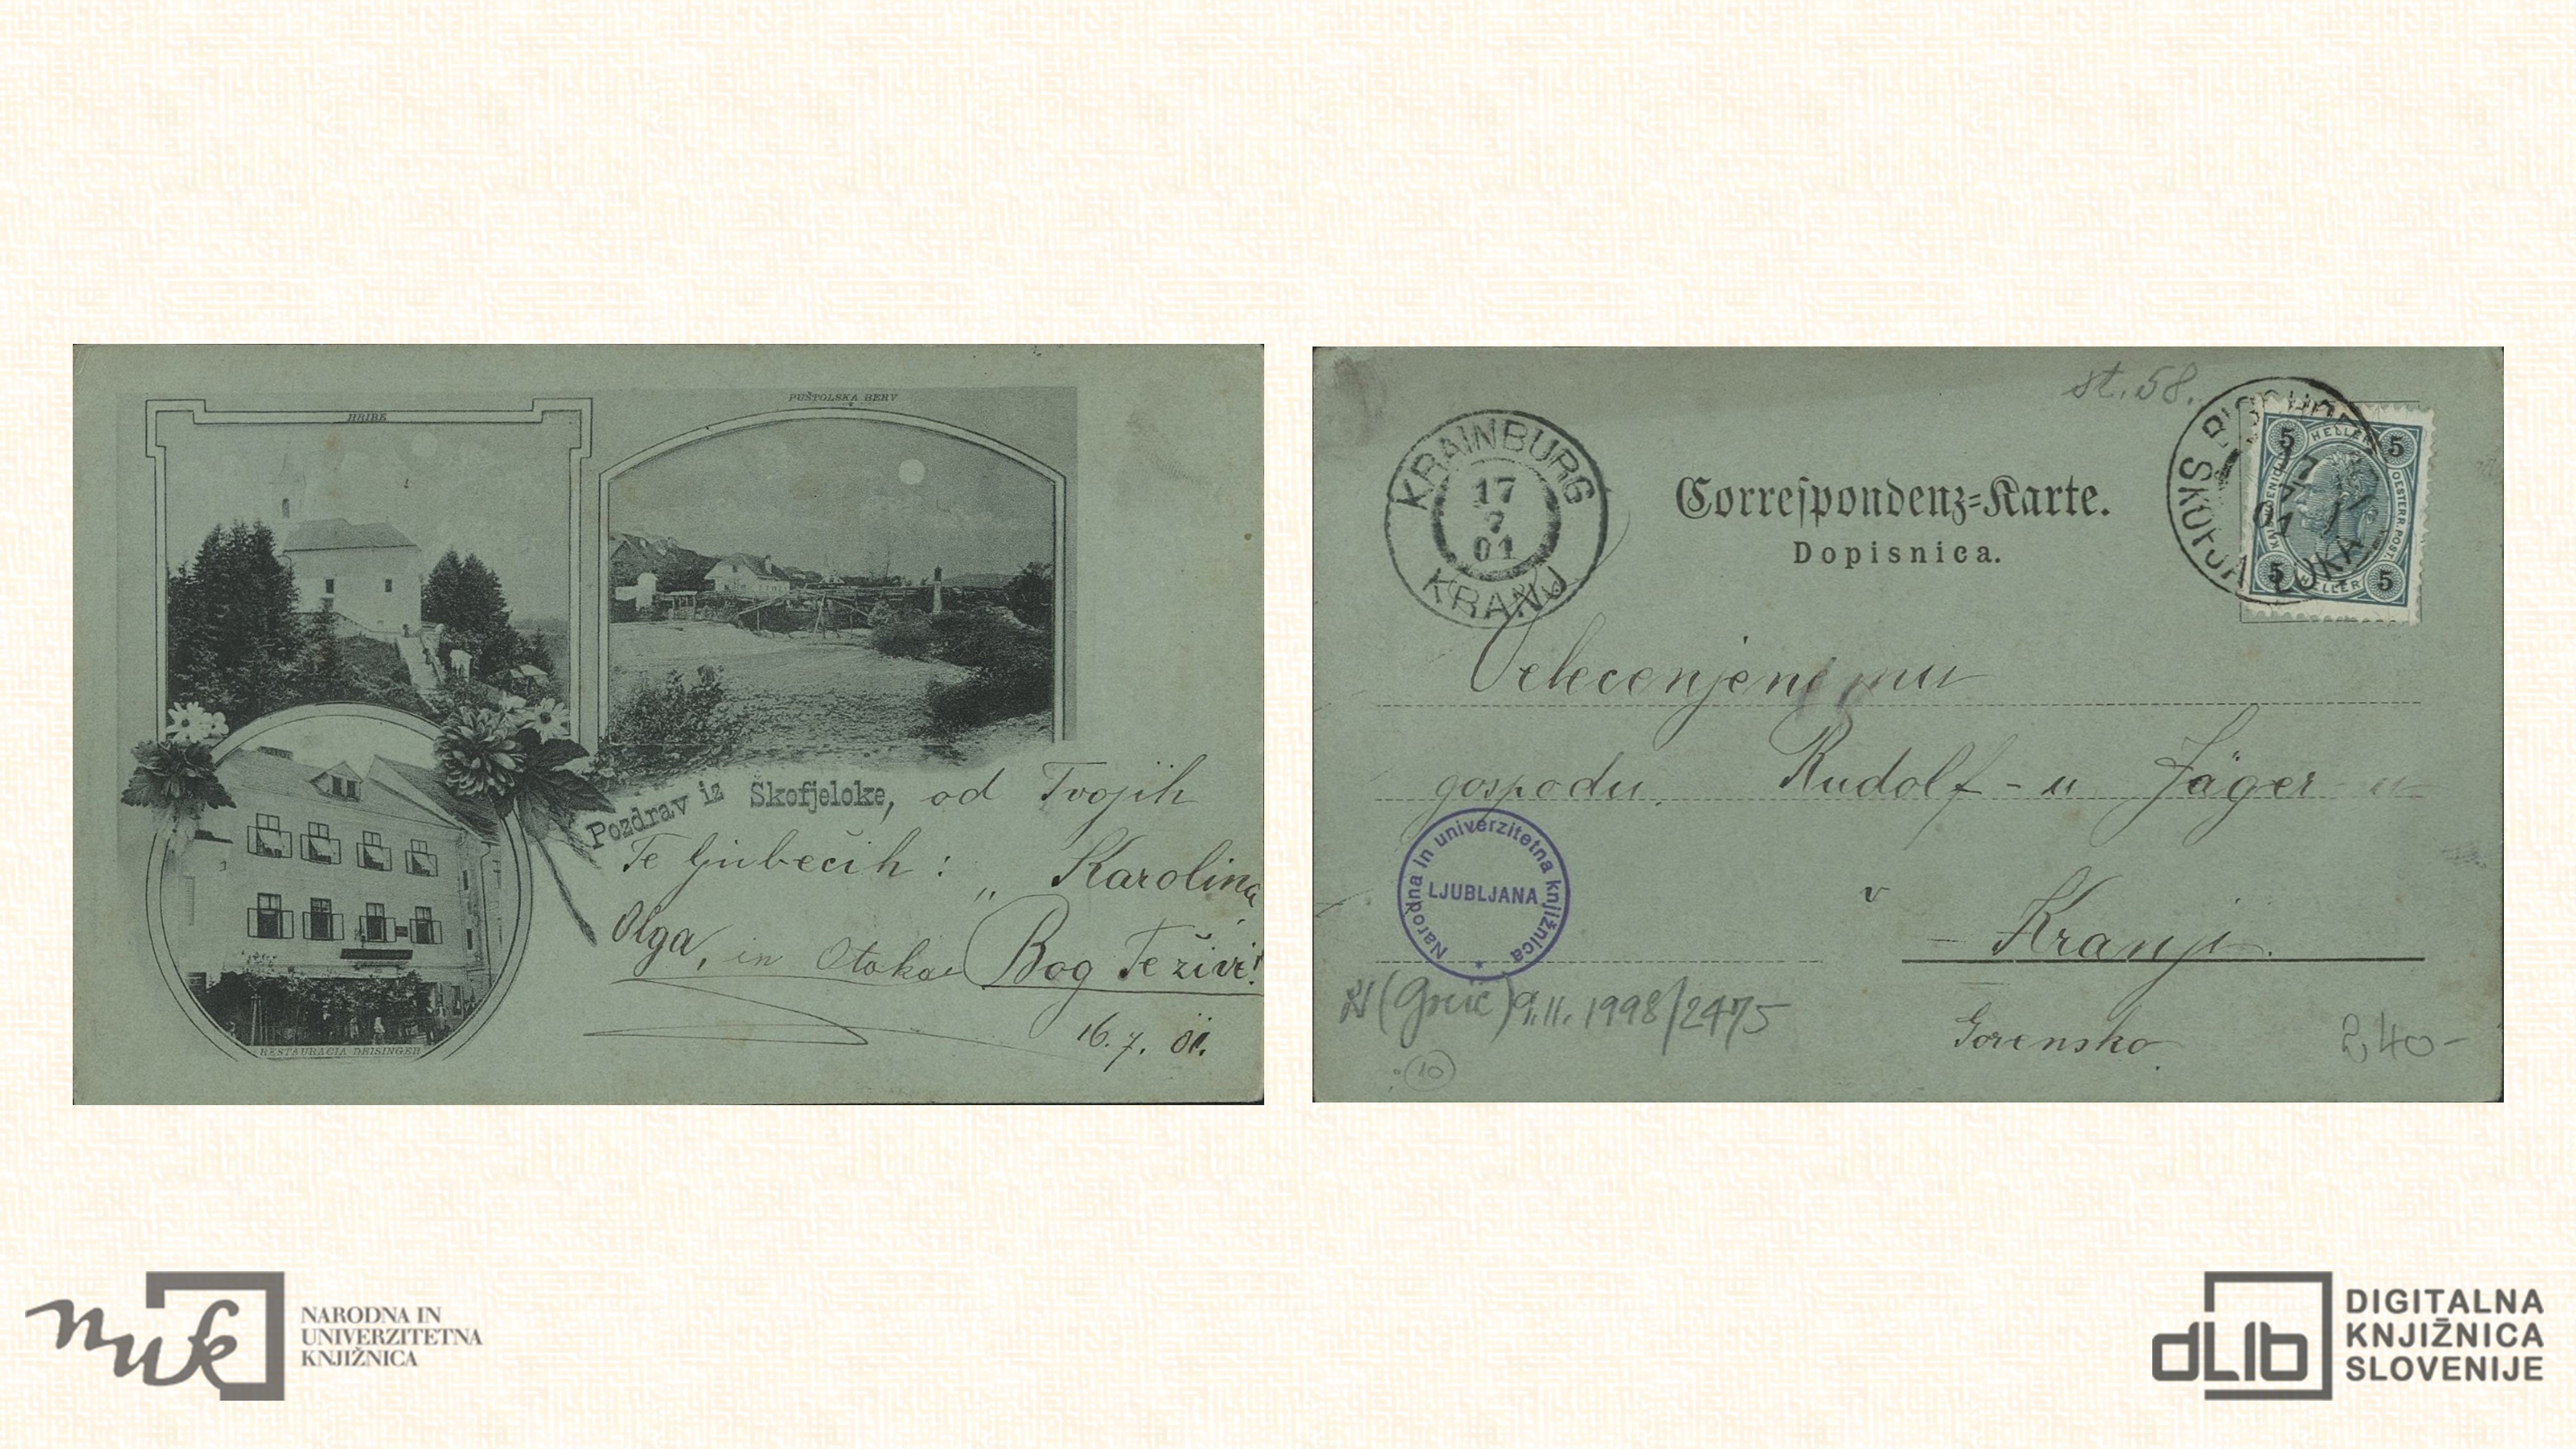 HRIBE
PUŠTOLSKA BERV
Pozdrav iz Škofjeloke, od Tvojih
Te ljubečih: „Karolina
Olga, in Otokar Bog Te živi!
16. 7. 01.
RESTAURACIA DEISINGER
st. 58.
KRAINBURG
17
7
01
KRANJ
Correspondenz-Karte.
Dopisnica.
5 HELLER 5
OESTERR. POST.
5 HELLER 5
LOKA
Velecenjenemu
gospodu Rudolf-u Jäger-u
v
Kranji.
Gorensko.
Narodna in univerzitetna knjižnica
LJUBLJANA
9.11.1998/2475
10
240-
nuk
NARODNA IN
UNIVERZITETNA
KNJIŽNICA
dLib
DIGITALNA
KNJIŽNICA
SLOVENIJE